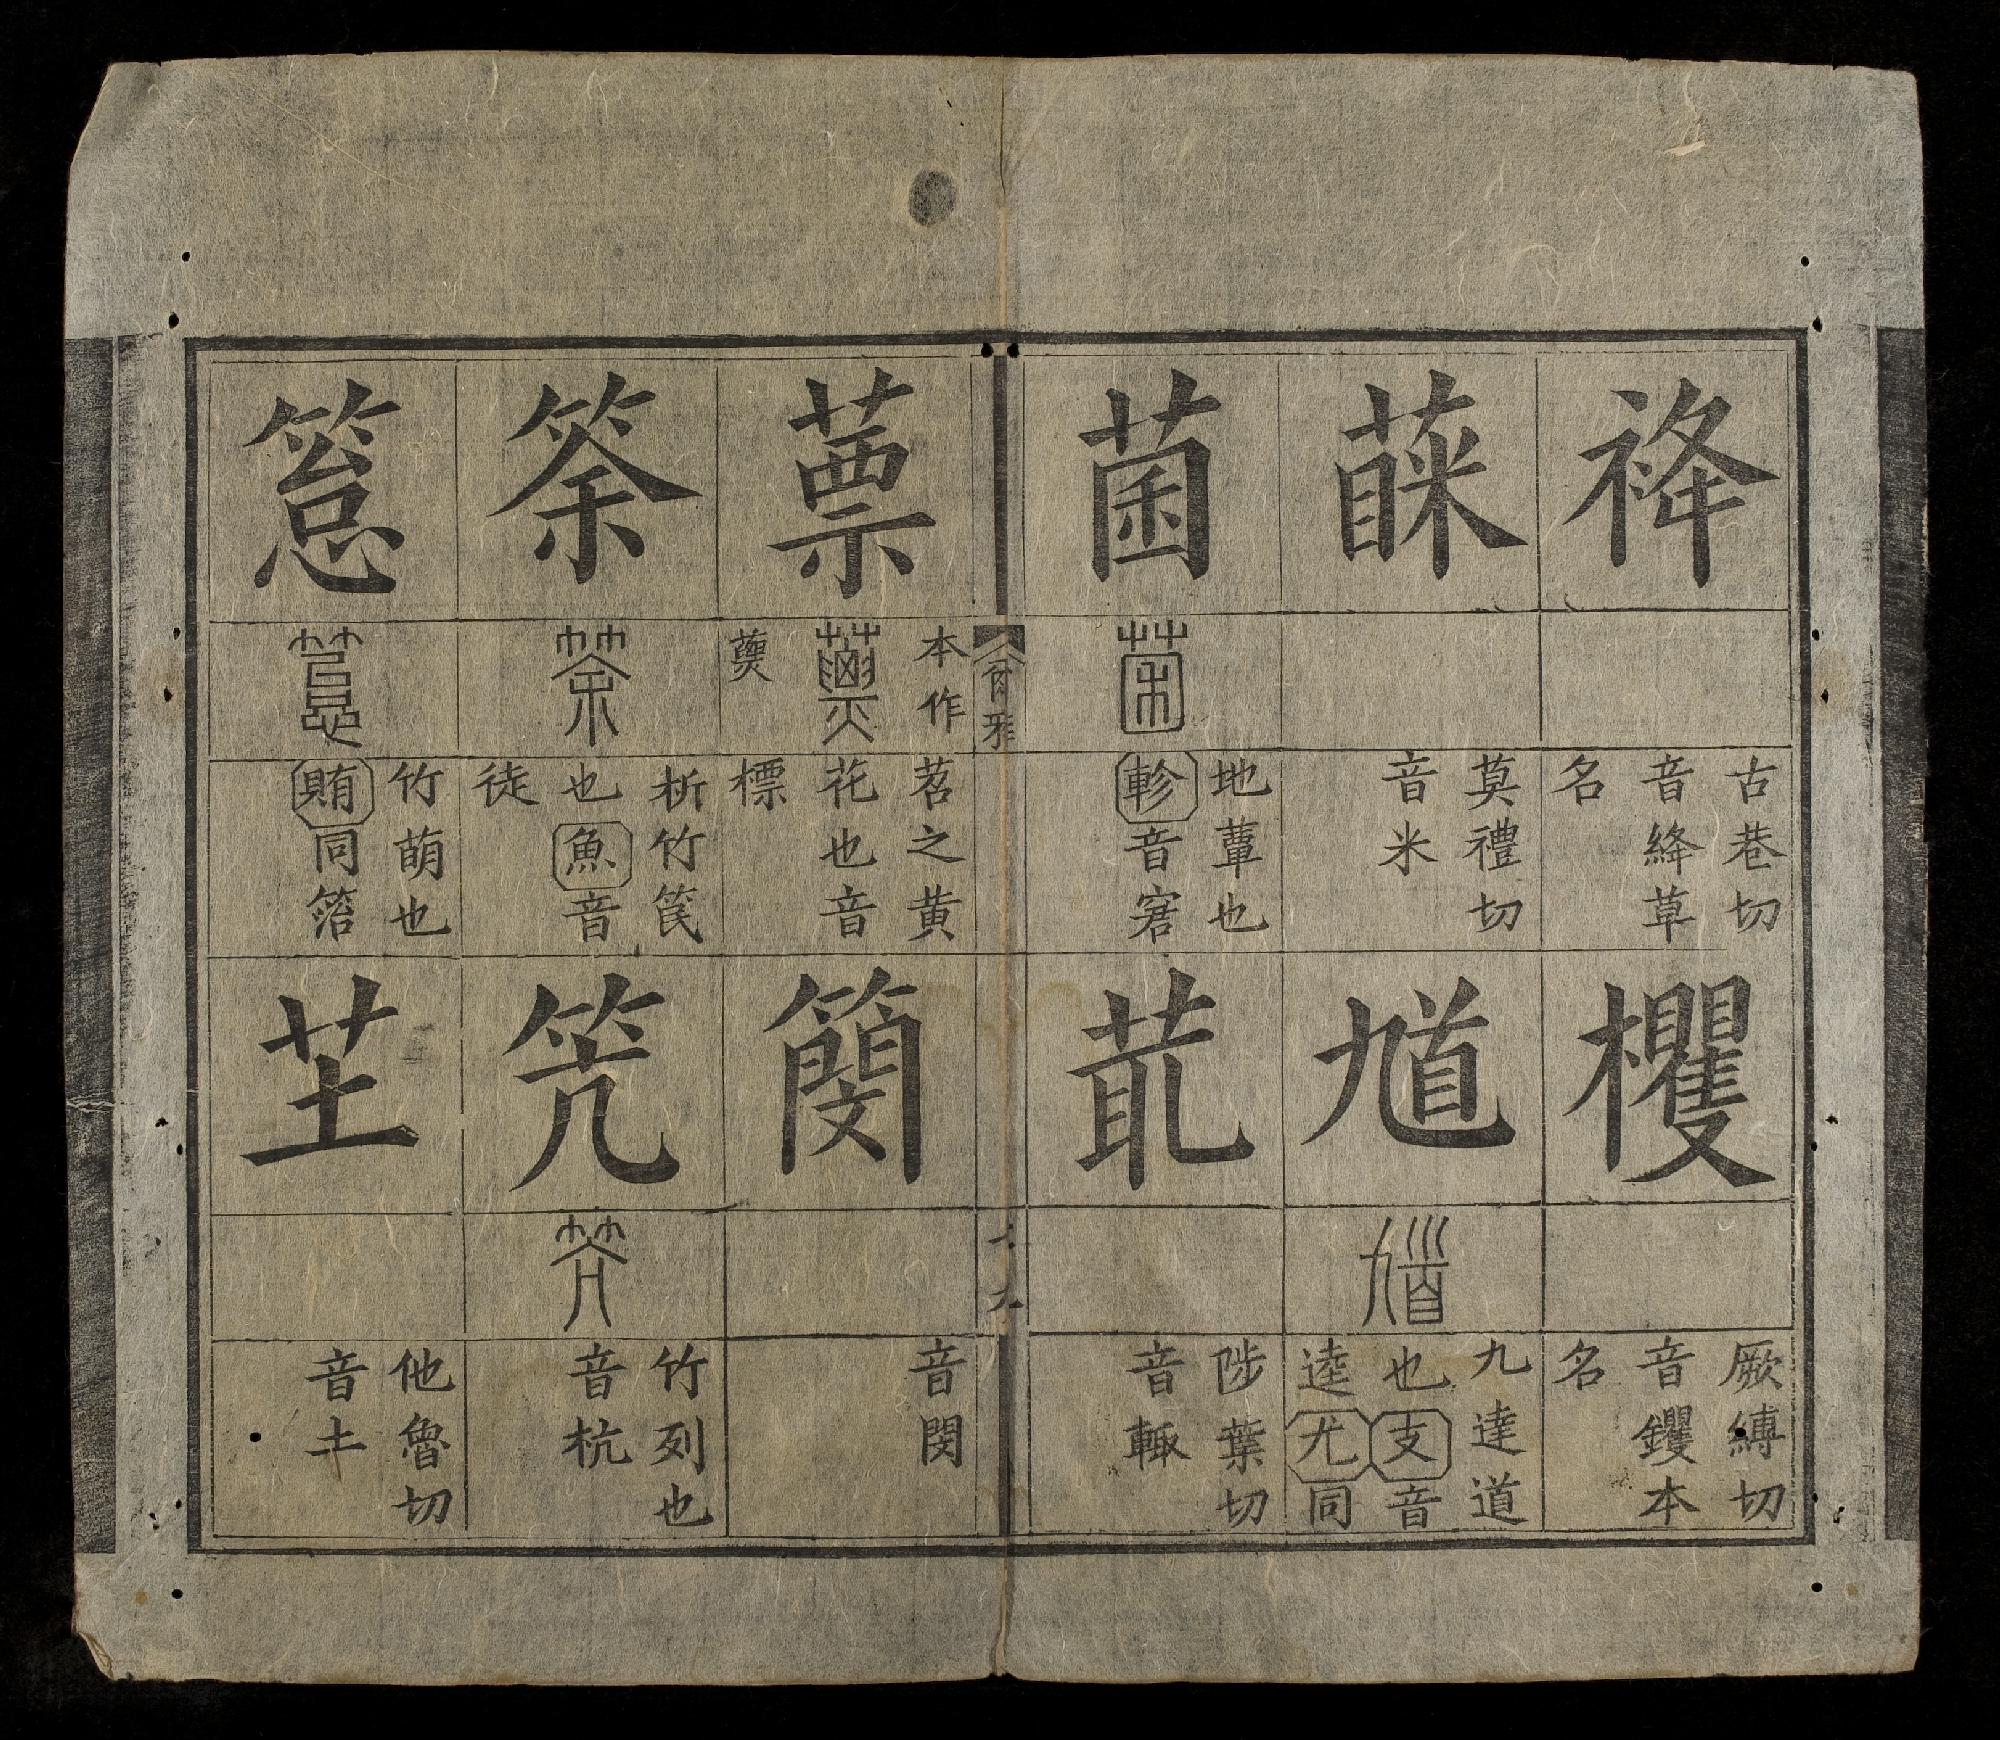 袶
古巷切
音絳草
名
欔
厥縛切
音钁本
名
蔝
莫禮切
音米
馗
九達道
也支音
逵尤同
菌
地蕈也
軫音窘
陟葉切
音輒
雅
蔈
本作
苕之黄
花也音
標
簢
音閔
筡
析竹笢
也魚音
徒
笐
竹列也
音杭
䈚
竹萌也
賄同箈
芏
他魯切
音土